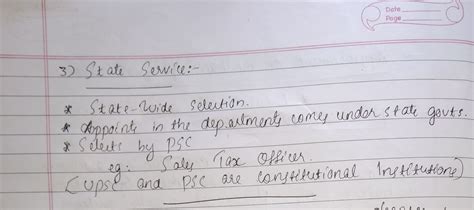 Date
Page
3) State Service:-
* State-Wide Selection.
* Appoints in the departments comes under state govts.
* Selects by PSC
eg: Sales Tax Officer.
(UPSC and PSC are constitutional Institutions)